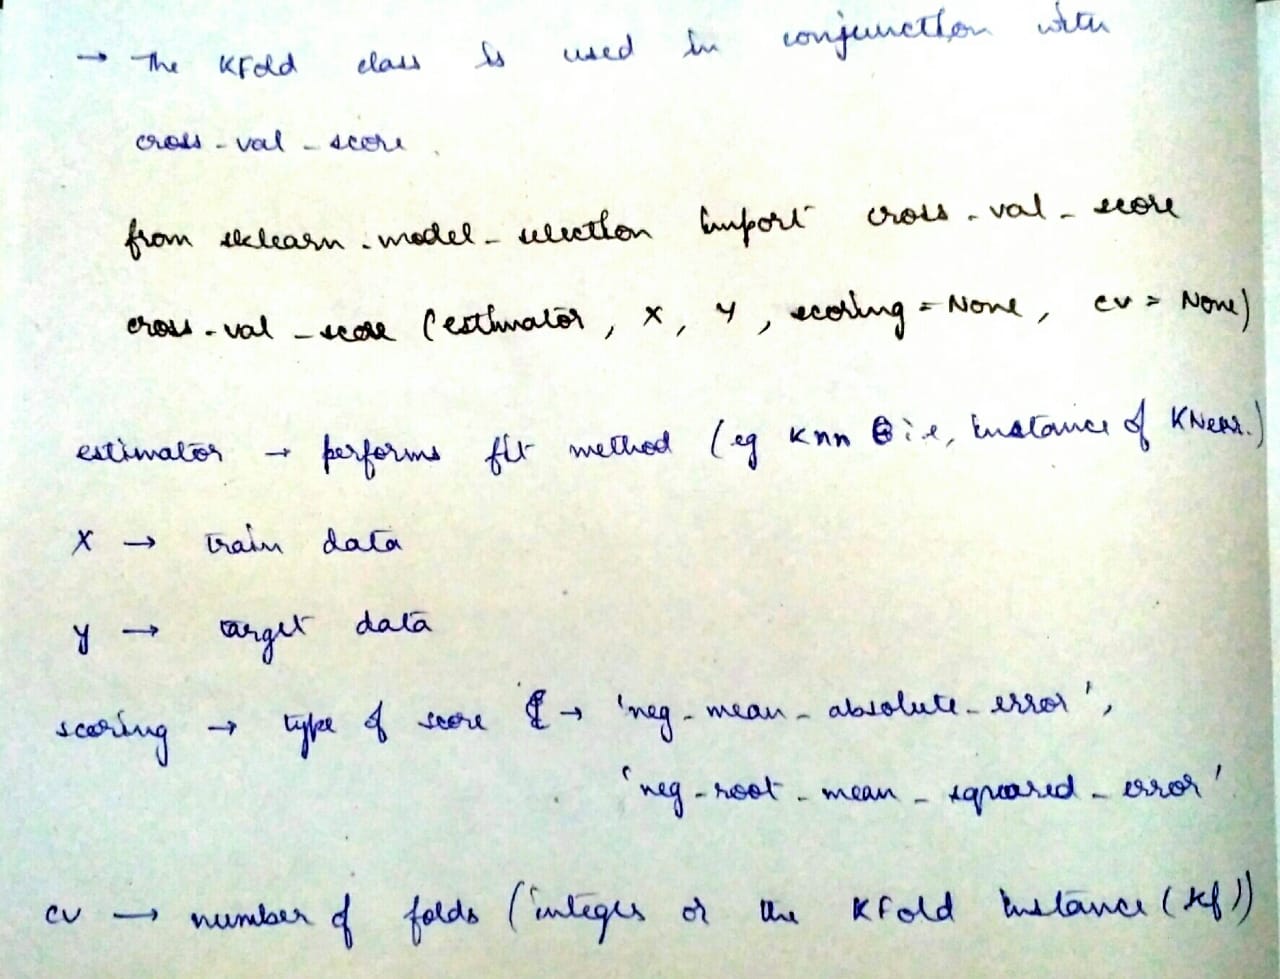 → The KFold class is used in conjunction with
cross-val-score.
from sklearn.model-selection import cross-val-score
cross-val-score (estimator, X, Y, scoring = None, cv = None)
estimator → performs fit method (eg Knn i.e, instance of KNear.)
X → train data
y → target data
scoring → type of score → 'neg-mean-absolute-error',
'neg-root-mean-squared-error'
cv → number of folds (integer or the KFold instance (kf))